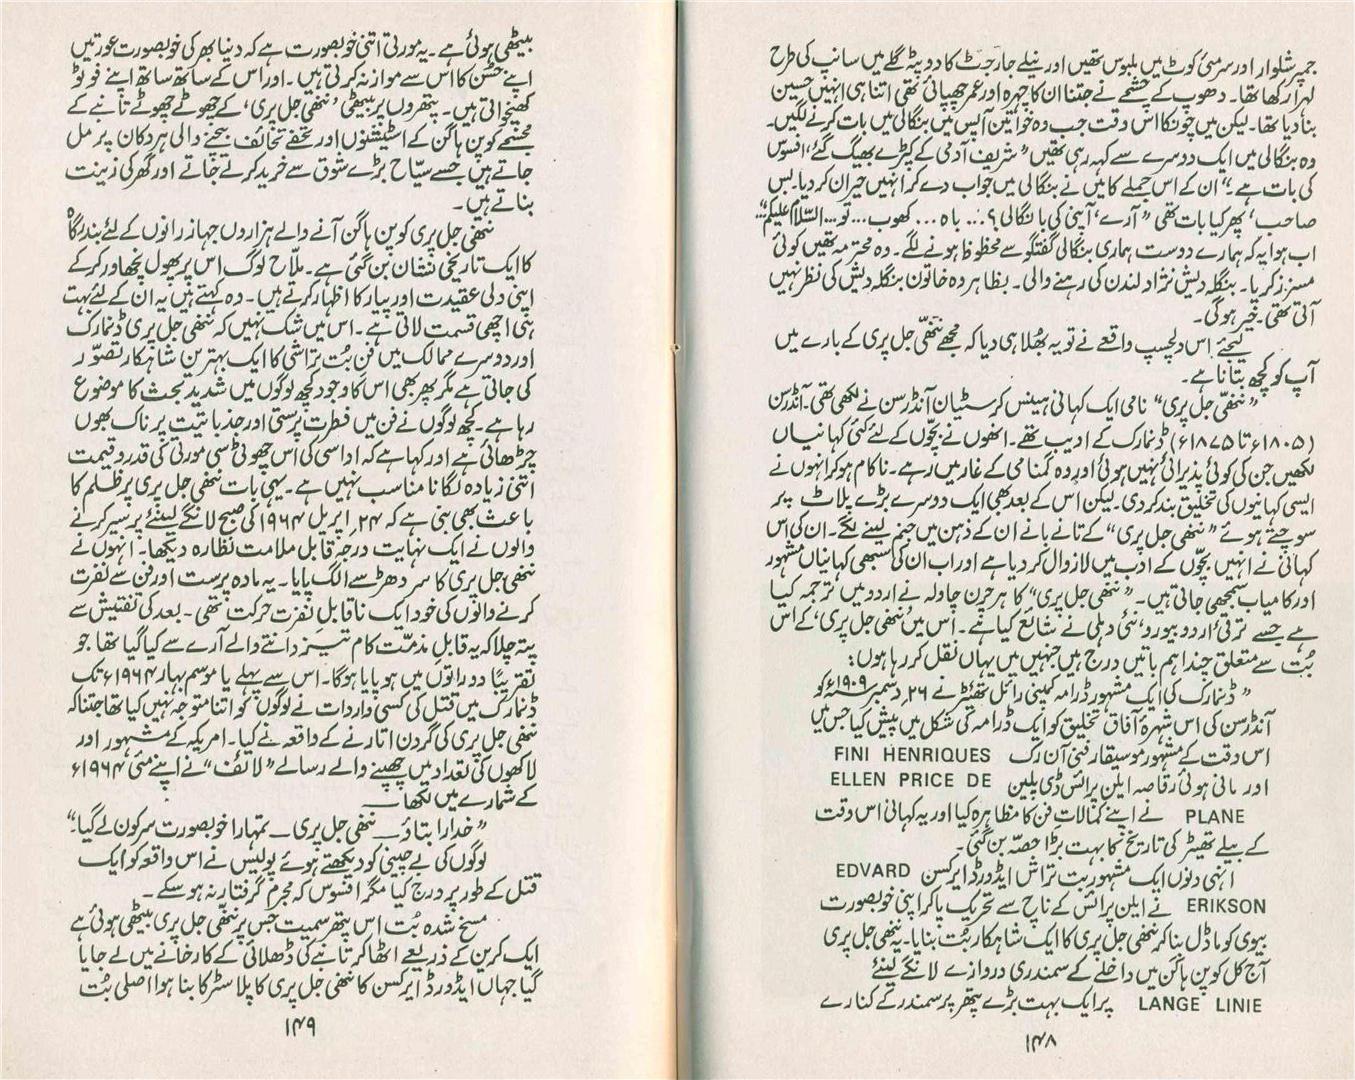 جمپر شلوار اور سرمئی کوٹ میں ملبوس تھیں اور نیلے جارجٹ کا دوپٹہ گلے میں سانپ کی طرح
لہرا رکھا تھا۔ دھوپ کے چشمے نے جتنا ان کا چہرہ اور عمر چھپائی تھی اتنا ہی انہیں حسین
بنا دیا تھا۔ لیکن میں چونکا اس وقت جب وہ خواتین آپس میں بنگالی میں بات کرنے لگیں۔
وہ بنگالی میں ایک دوسرے سے کہہ رہی تھیں ”شریف آدمی کے کپڑے بھیگ گئے، افسوس
کی بات ہے۔“ ان کے اس جملے کا میں نے بنگالی میں جواب دے کر انہیں حیران کر دیا۔ بس
صاحب، پھر کیا بات تھی ”آرے، آپنی کی با نگالی؟... باہ... کھوب... تو... السّلامُ علیکم“...
اب ہوا یہ کہ ہمارے دوست ہماری بنگالی گفتگو سے محظوظ ہونے لگے۔ وہ محترمہ تھیں کوئی
مسز زکریا۔ بنگلہ دیش نژاد لندن کی رہنے والی۔ بظاہر وہ خاتون بنگلہ دیش کی نظر نہیں
آتی تھی۔ خیر ہو گی۔
لیجئے اس دلچسپ واقعے نے تو یہ بھُلا ہی دیا کہ مجھے ننھّی جل پری کے بارے میں
آپ کو کچھ بتانا ہے۔
”ننھّی جل پری“ نامی ایک کہانی ہینس کرسٹیان آنڈرسن نے لکھی تھی۔ آنڈرسن
(۱۸۰۵ء تا ۱۸۷۵ء) ڈنمارک کے ادیب تھے۔ انھوں نے بچّوں کے لئے کئی کہانیاں
لکھیں جن کی کوئی پذیرائی نہیں ہوئی اور وہ گمنامی کے غار میں رہے۔ ناکام ہو کر انہوں نے
ایسی کہانیوں کی تخلیق بند کر دی۔ لیکن اس کے بعد بھی ایک دوسرے بڑے پلاٹ پر
سوچتے ہوئے ”ننھی جل پری“ کے تانے بانے ان کے ذہن میں جنم لینے لگے۔ ان کی اس
کہانی نے انہیں بچّوں کے ادب میں لازوال کر دیا ہے اور اب ان کی سبھی کہانیاں مشہور
اور کامیاب سمجھی جاتی ہیں۔ ”ننھی جل پری“ کا ہرچرن چاولہ نے اردو میں ترجمہ کیا
ہے جسے ترقی اردو بیورو، نئی دہلی نے شائع کیا ہے۔ اس میں ننھی جل پری، کے اس
بُت سے متعلق چند اہم باتیں درج ہیں جنہیں میں یہاں نقل کر رہا ہوں:
”ڈنمارک کی ایک مشہور ڈرامہ کمپنی رائل تھیئٹر نے ۲۶؍ دسمبر ۱۹۰۹ء کو
آنڈرسن کی اس شہرۂ آفاق تخلیق کو ایک ڈرامہ کی شکل میں پیش کیا جس میں
اس وقت کے مشہور موسیقار فنی آن رک FINI HENRIQUES
اور مانی ہوئی رقاصہ ایلن پرائس ڈی پلین ELLEN PRICE DE
PLANE نے اپنے کمالات فن کا مظاہرہ کیا اور یہ کہانی اس وقت
کے بیلے تھیٹر کی تاریخ کا بہت بڑا حصّہ بن گئی۔
انہی دنوں ایک مشہور بت تراش ایڈورڈ ایرکسن EDVARD
ERIKSON نے ایلن پرائس کے ناچ سے تحریک پا کر اپنی خوبصورت
بیوی کو ماڈل بنا کر ننھی جل پری کا ایک شاہکار بُت بنایا۔ یہ ننھی جل پری
آج کل کوپن ہاگن میں داخلے کے سمندری دروازے لانگے لینئے
LANGE LINIE پر ایک بہت بڑے پتھر پر سمندر کے کنارے
۱۴۸
بیٹھی ہوئی ہے۔ یہ مورتی اتنی خوبصورت ہے کہ دنیا بھر کی خوبصورت عورتیں
اپنے حُسن کا اس سے موازنہ کرتی ہیں۔ اور اس کے ساتھ ساتھ اپنے فوٹو
کھنچواتی ہیں۔ پتھروں پر بیٹھی ’ننھی جل پری‘، کے چھوٹے چھوٹے تانبے کے
مجسّمے کوپن ہاگن کے اسٹیشنوں اور تحفے تحائف بیچنے والی ہر دکان پر مل
جاتے ہیں جسے سیّاح بڑے شوق سے خرید کر لے جاتے اور گھر کی زینت
بناتے ہیں۔
ننھی جل پری کوپن ہاگن آنے والے ہزاروں جہاز رانوں کے لئے بندرگاہ
کا ایک تاریخی نشان بن گئی ہے۔ ملاّح لوگ اس پر پھول نچھاور کر کے
اپنی دلی عقیدت اور پیار کا اظہار کرتے ہیں۔ وہ کہتے ہیں یہ ان کے لئے بہت
ہی اچھی قسمت لاتی ہے۔ اس میں شک نہیں کہ ننھی جل پری ڈنمارک
اور دوسرے ممالک میں فنِ بُت تراشی کا ایک بہترین شاہکار تصوّر
کی جاتی ہے مگر پھر بھی اس کا وجود کچھ لوگوں میں شدید بحث کا موضوع
رہا ہے۔ کچھ لوگوں نے فن میں فطرت پرستی اور جذباتیت پر ناک بھوں
چڑھائی ہے اور کہا ہے کہ اداسی کی اس چھوٹی سی مورتی کی قدر و قیمت
اتنی زیادہ لگانا مناسب نہیں ہے۔ یہی بات ننھی جل پری پر ظلم کا
باعث بھی بنی ہے کہ ۲۴؍ اپریل ۱۹۶۴ء کی صبح لانگے لینئے پر سیر کرنے
والوں نے ایک نہایت درجہ قابلِ ملامت نظارہ دیکھا۔ انہوں نے
ننھی جل پری کا سر دھڑ سے الگ پایا۔ یہ مادہ پرست اور فن سے نفرت
کرنے والوں کی خود ایک ناقابلِ نفرت حرکت تھی۔ بعد کی تفتیش سے
پتہ چلا کہ یہ قابلِ مذمّت کام تیز دانتے والے آرے سے کیا گیا تھا جو
تقریبًا دو راتوں میں ہو پایا ہو گا۔ اس سے پہلے یا موسم بہار ۱۹۶۴ء تک
ڈنمارک میں قتل کی کسی واردات نے لوگوں کو اتنا متوجہ نہیں کیا تھا جتنا کہ
ننھی جل پری کی گردن اتارنے کے واقعہ نے کیا۔ امریکہ کے مشہور اور
لاکھوں کی تعداد میں چھپنے والے رسالے ”لائف“ نے اپنے مئی ۱۹۶۴ء
کے شمارے میں لکھا—
”خدارا بتاؤ— ننھی جل پری— تمہارا خوبصورت سر کون لے گیا۔“
لوگوں کی بے چینی کو دیکھتے ہوئے پولیس نے اس واقعہ کو ایک
قتل کے طور پر درج کیا مگر افسوس کہ مجرم گرفتار نہ ہو سکے۔
مسخ شدہ بُت اس پتھر سمیت جس پر ننھّی جل پری بیٹھی ہوئی ہے
ایک کرین کے ذریعے اٹھا کر تانبے کی ڈھلائی کے کارخانے میں لے جایا
گیا جہاں ایڈورڈ ایرکسن کا ننھی جل پری کا پلاسٹر کا بنا ہوا اصلی بُت
۱۴۹